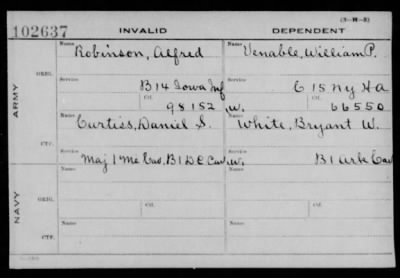 (3-M-3)
102637 INVALID DEPENDENT
Name Name
Robinson, Alfred Venable, William P.
ORIG. Service Service
B 14 Iowa Inf C 15 N y H A
Ctf. Ctf.
98152 W. 66550
ARMY
Name Name
Curtiss, Daniel S. White, Bryant W.
CTF. Service Service
Maj 1 Me Cav, B 1 D C Cav W. B 1 Ark Cav
Name Name
ORIG.
NAVY
Service Ctf. Service Ctf.
Name Name
CTF.